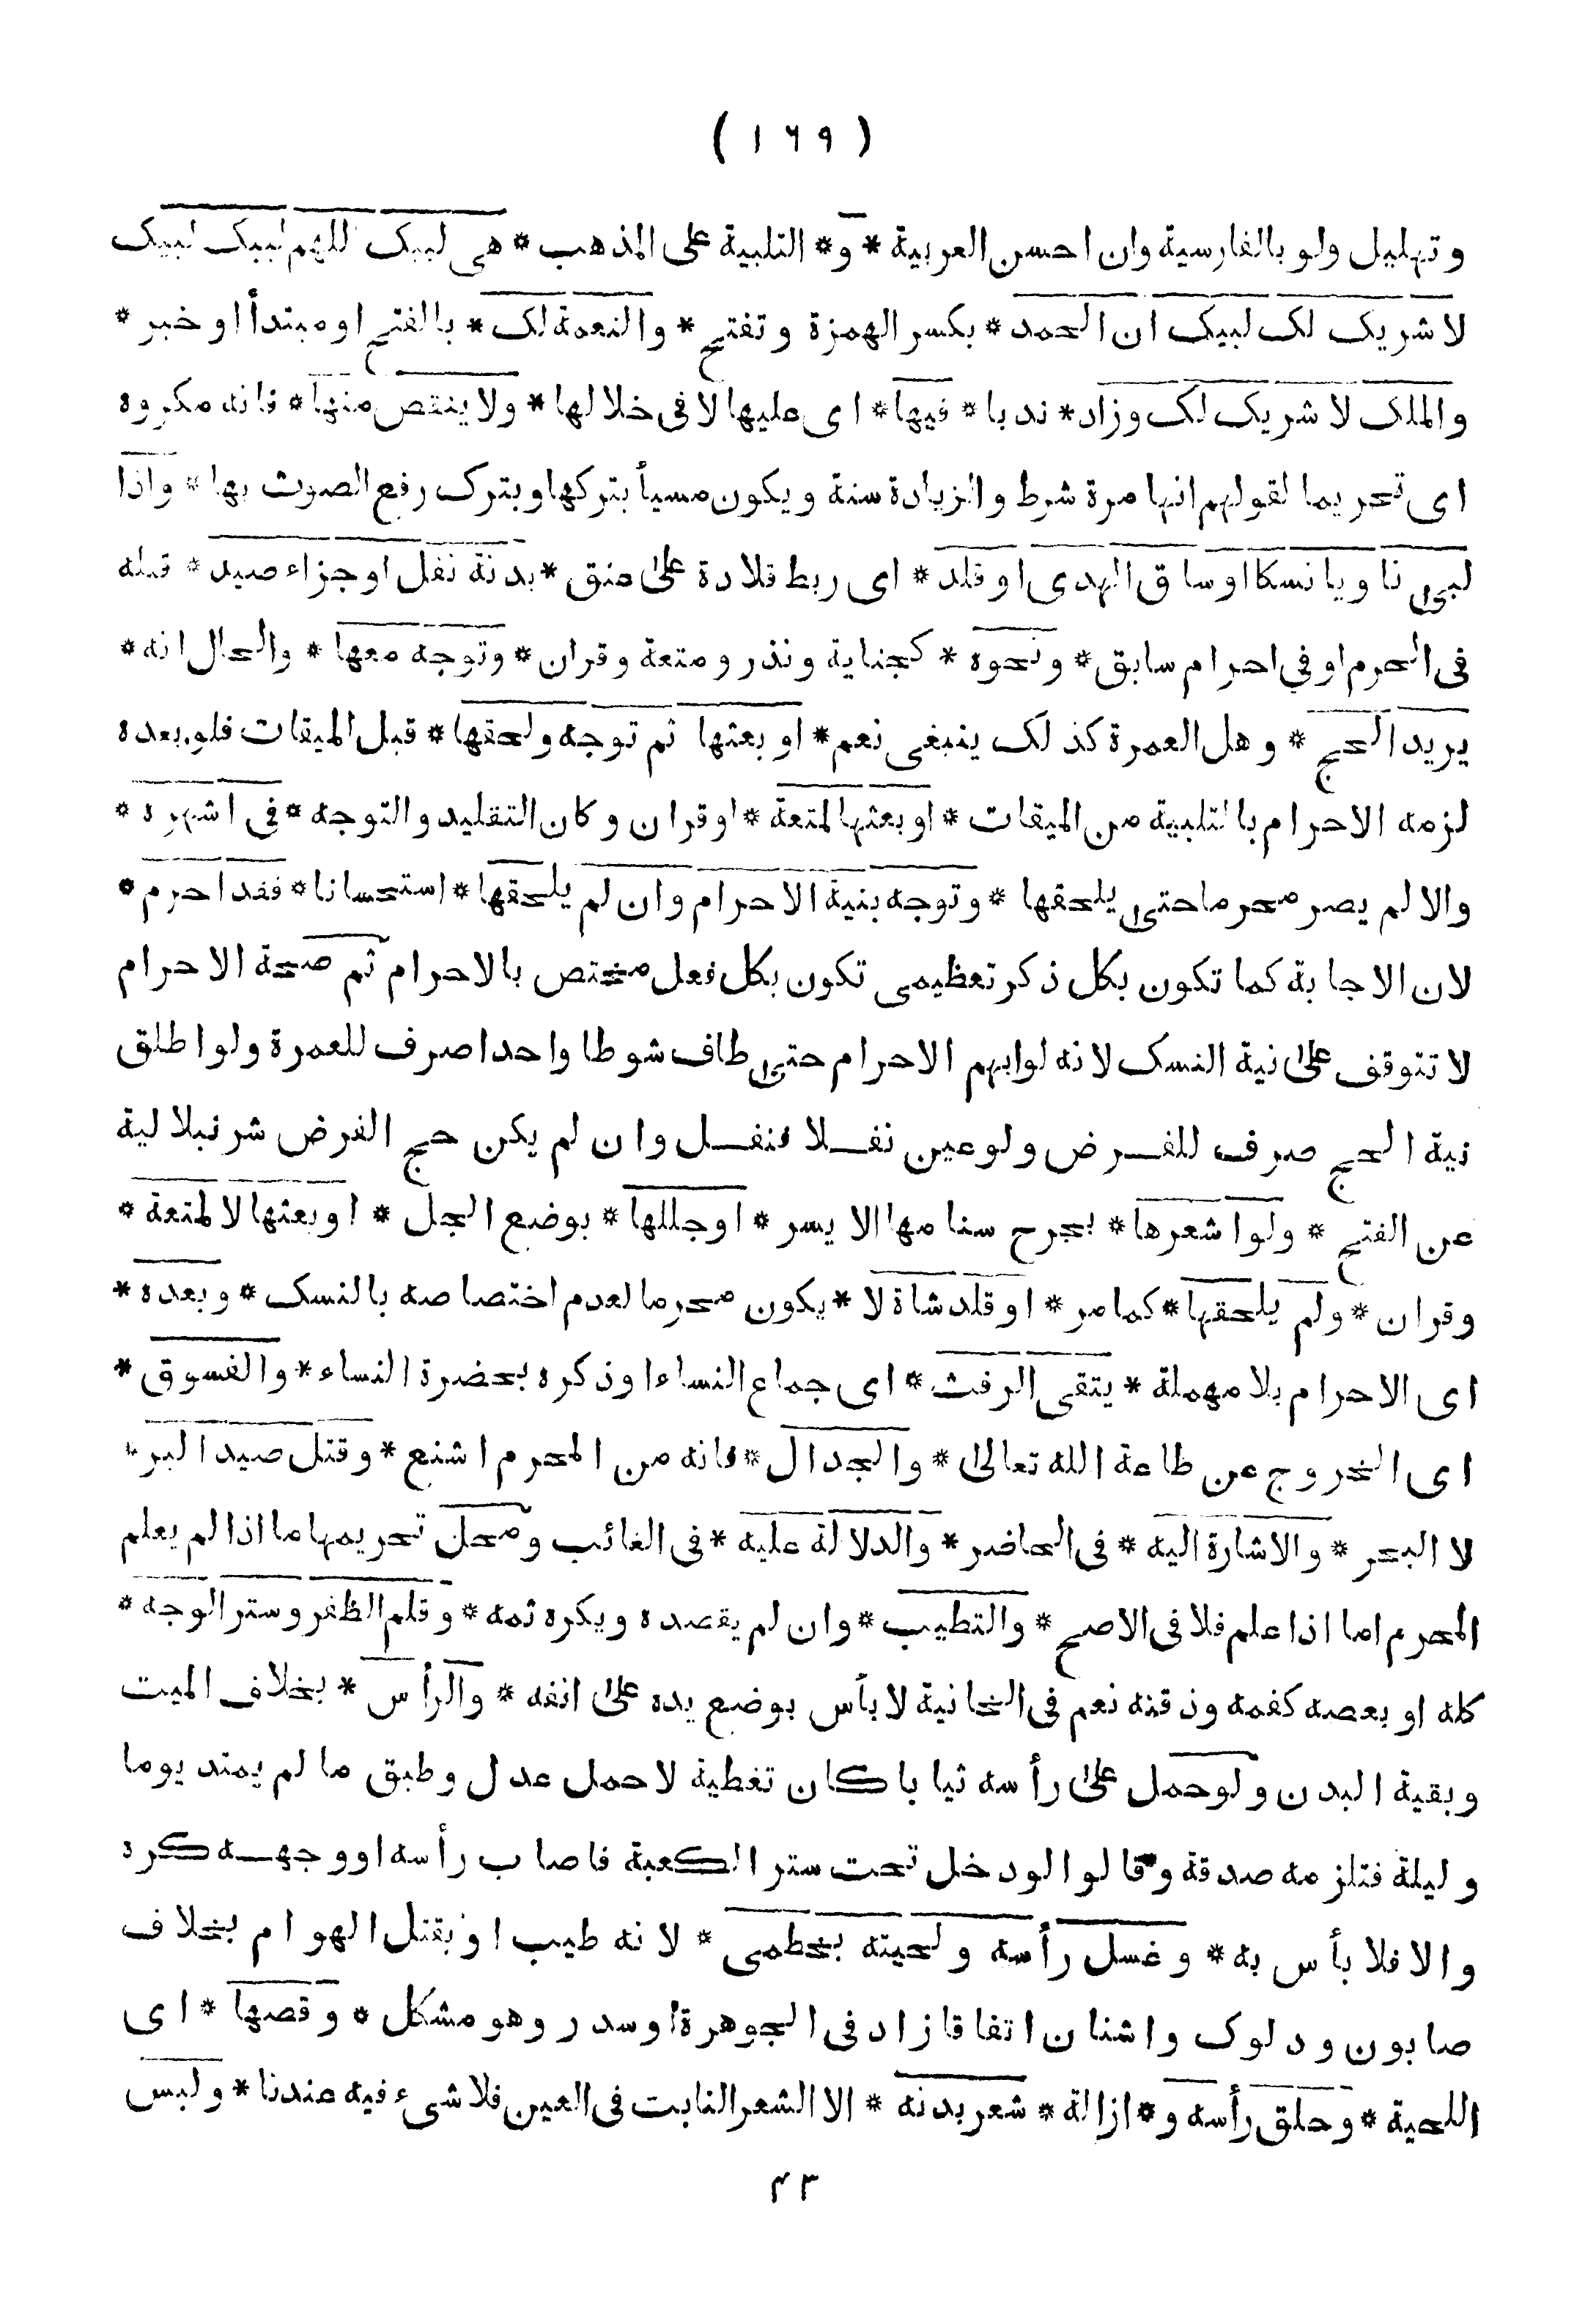 ( ١٦٩ )
وتهليل ولو بالفارسية وان احسن العربية * و * التلبية على المذهب * هى لبيك اللهم لبيك لبيك
لا شريك لك لبيك ان الحمد * بكسر الهمزة وتفتح * والنعمة لك * بالفتح او مبتدأ او خبر *
والملك لا شريك لك وزاد * ندبا * فيها * اى عليها لا فى خلالها * ولا ينقص منها * فانه مكروه
اى تحريما لقولهم انها مرة شرط والزيادة سنة ويكون مسيأ بتركها وبترك رفع الصوت بها * واذا
لبى نا ويا نسكا او ساق الهدى او قلد * اى ربط قلادة على عنق * بدنة نفل او جزاء صيد * قتله
فى الحرم او فى احرام سابق * ونحوه * كجناية ونذر ومتعة وقران * وتوجه معها * والحال انه *
يريد الحج * وهل العمرة كذلك ينبغى نعم * او بعثها ثم توجه ولحقها * قبل الميقات فلو بعده
لزمه الاحرام بالتلبية من الميقات * او بعثها لمتعة * او قران وكان التقليد والتوجه * فى اشهره *
والا لم يصر محرما حتى يلحقها * وتوجه بنية الاحرام وان لم يلحقها * استحسانا * فقد احرم *
لان الاجابة كما تكون بكل ذكر تعظيمى تكون بكل فعل مختص بالاحرام ثم صحة الاحرام
لا تتوقف على نية النسك لانه لو ابهم الاحرام حتى طاف شوطا واحدا صرف للعمرة ولو اطلق
نية الحج صرف للفرض ولو عين نفلا فنفل وان لم يكن حج الفرض شرنبلالية
عن الفتح * ولو اشعرها * بجرح سنامها الايسر * او جللها * بوضع الجل * او بعثها لا لمتعة *
وقران * ولم يلحقها * كما مر * او قلد شاة لا * يكون محرما لعدم اختصاصه بالنسك * وبعده *
اى الاحرام بلا مهملة * يتقى الرفث * اى جماع النساء او ذكره بحضرة النساء * والفسوق *
اى الخروج عن طاعة الله تعالى * والجدال * فانه من المحرم اشنع * وقتل صيد البر *
لا البحر * والاشارة اليه * فى الحاضر * والدلالة عليه * فى الغائب ومحل تحريمها ما اذا لم يعلم
المحرم اما اذا علم فلا فى الاصح * والتطيب * وان لم يقصده ويكره ثمه * وقلم الظفر وستر الوجه *
كله او بعضه كفمه وذقنه نعم فى الخانية لا بأس بوضع يده على انفه * والرأس * بخلاف الميت
وبقية البدن ولو حمل على رأسه ثيابا كان تغطية لا حمل عدل وطبق ما لم يمتد يوما
وليلة فتلزمه صدقة وقالوا لو دخل تحت ستر الكعبة فاصاب رأسه او وجهه كره
والا فلا بأس به * وغسل رأسه ولحيته بخطمى * لانه طيب او بقتل الهوام بخلاف
صابون ودلوك واشنان اتفاقا زاد فى الجوهرة او سدر وهو مشكل * وقصها * اى
اللحية * وحلق رأسه و * ازالة * شعر بدنه * الا الشعر النابت فى العين فلا شىء فيه عندنا * ولبس
٤٣